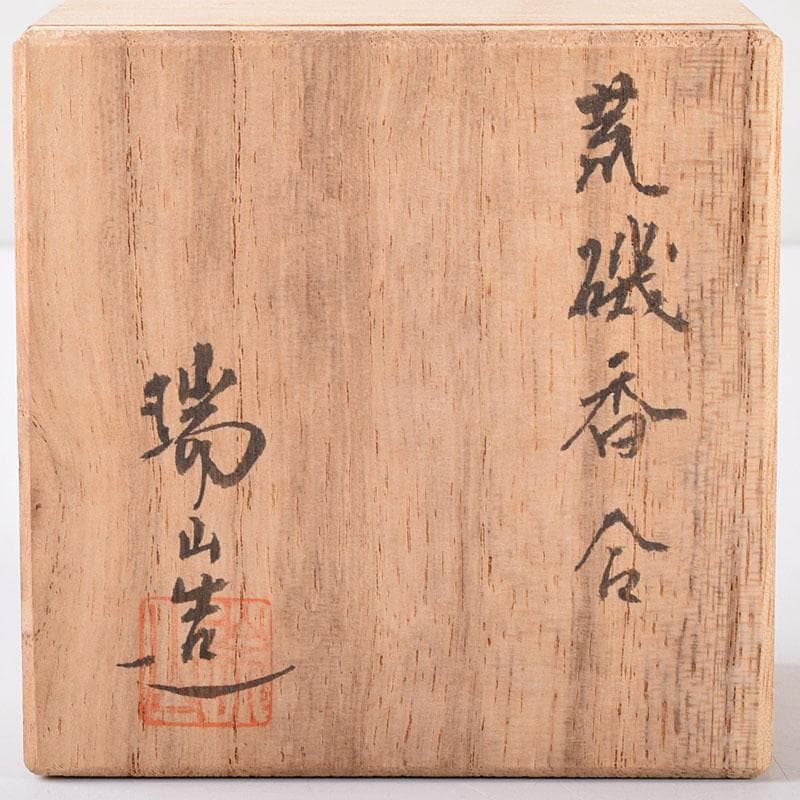 荒磯香合
瑞山造